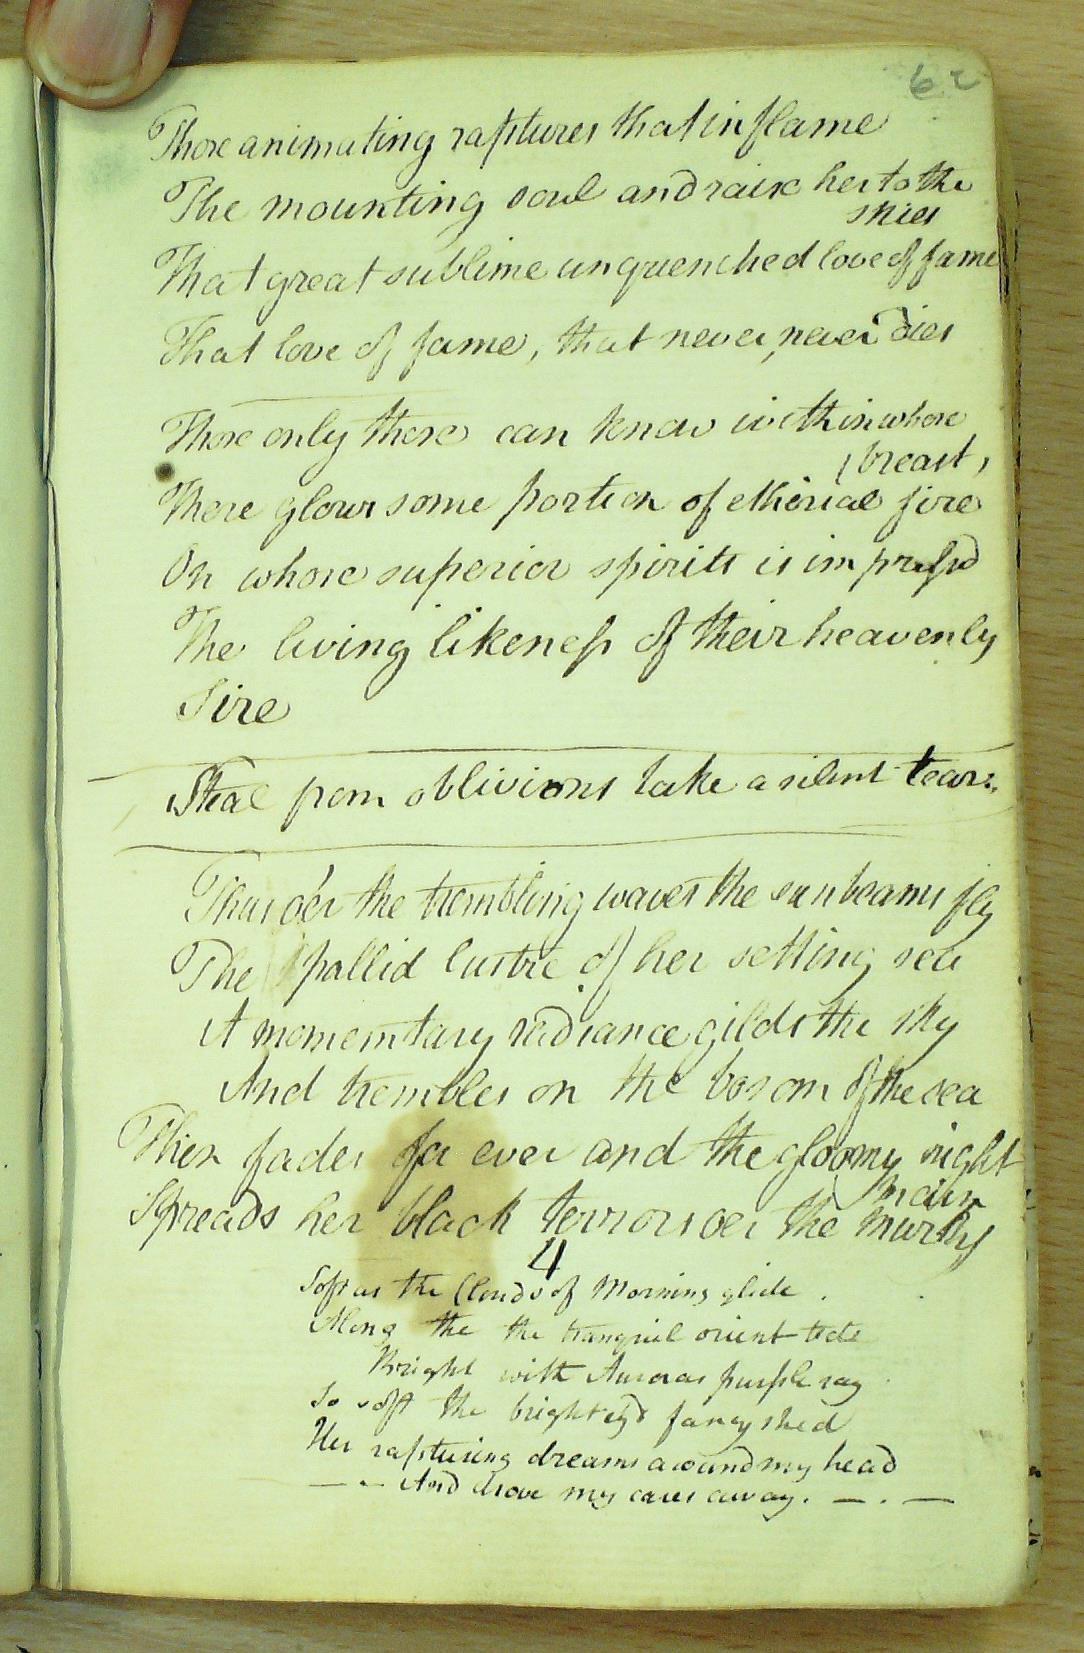 62
Those animating raptures that inflame
The mounting soul and raise her to the
skies
That great sublime unquenched love of fame
That love of fame, that never, never dies
Those only those can know within whose
(breast,
There glows some portion of etherial fire
On whose superior spirits is impressd
The living likeness of their heavenly
Sire
Steal from oblivions lake a silent tear.
Thus o'er the trembling waves the sunbeams fly
The pallid lustre of her setting
A momemtary radiance gilds the sky
And trembles on the bosom of the sea
Then fades for ever and the gloomy night
Spreads her black terrors oer the murky
main
4
Soft as the Clouds of Morning glide
Along the the tranquil orient tide
Bright with Auroras purple ray
So soft the bright eyd fancy shed
Her rapturing dreams around my head
— - And drove my cares away. — . —